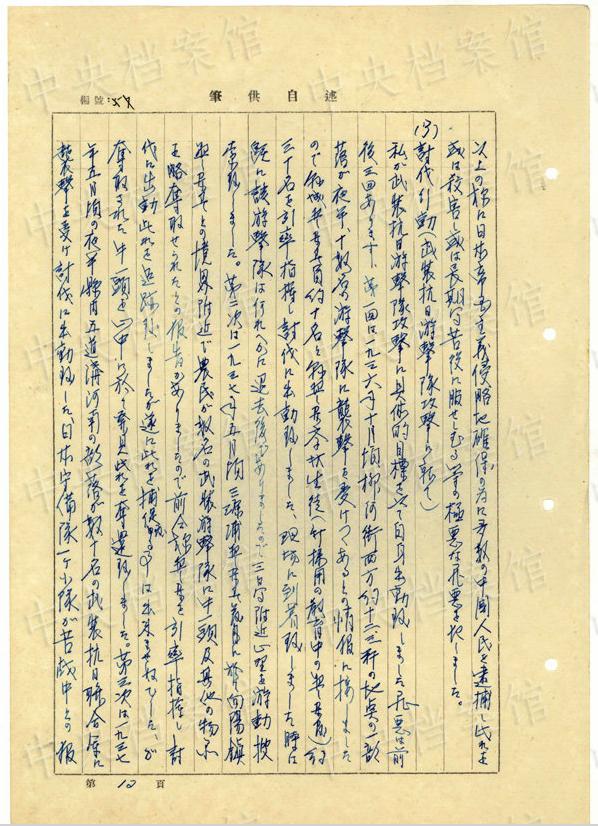 述自供筆
編號:57
以上の様に日本帝国主義侵略地確保の為に多数の中国人民を逮捕し此れを
或は殺害し或は長期間苦役に服せしむる等の極悪な罪悪を犯しました。
(3) 討伐行動(武装抗日游撃隊攻撃に就て)
私が武装抗日游撃隊攻撃に具体的目標を以て自身出動致しました罪悪は前
後三回あります、第一回は一九三六年十月頃柳河街西方約十二三粁の地点の一部
落が夜半、十数名の游撃隊に襲撃を受けつつあるとの情報に接しました
ので県城警察官約十名と
三十名を引率指揮し討伐に出動致しました、現場に到着致しました時は
既に該游撃隊は何れへかに退去後でありましたので三日間附近山野を游動捜
索致しました。第二次は一九三七年五月頃三源浦警察署管内に於て向陽鎮
警察署との境界附近で農民が数名の武装游撃隊に牛一頭及其他の物品
を略奪せられたとの報告がありましたので前全様警察を引率指揮し討
伐に出動此れを追跡致しましたが遂に此れを捕捉する事は出来ませんでした、が
奪取された牛一頭を山中に於て発見此れを奪還致しました。第三次は一九三七
年五月頃の夜半県内五道溝河南の部落が数十名の武装抗日聯合軍に
襲撃を受け討伐に出動致した日本守備隊一ヶ小隊が苦戦中との報
第 12 頁
中央档案馆